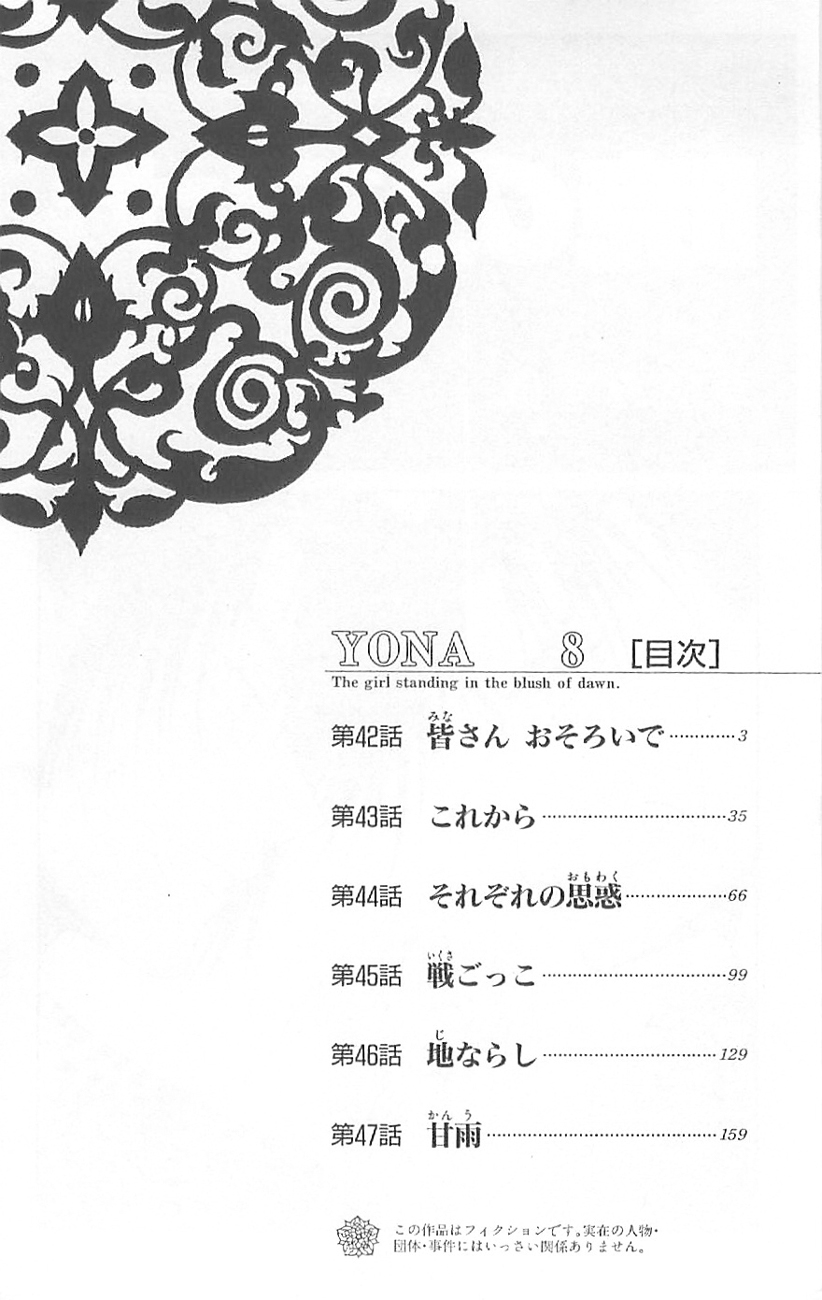 YONA 8 [目次]
The girl standing in the blush of dawn.
第42話 皆さん おそろいで 3
みな
第43話 これから 35
第44話 それぞれの思惑 66
おもわく
第45話 戦ごっこ 99
いくさ
第46話 地ならし 129
じ
第47話 甘雨 159
かんう
この作品はフィクションです。実在の人物・
団体・事件にはいっさい関係ありません。